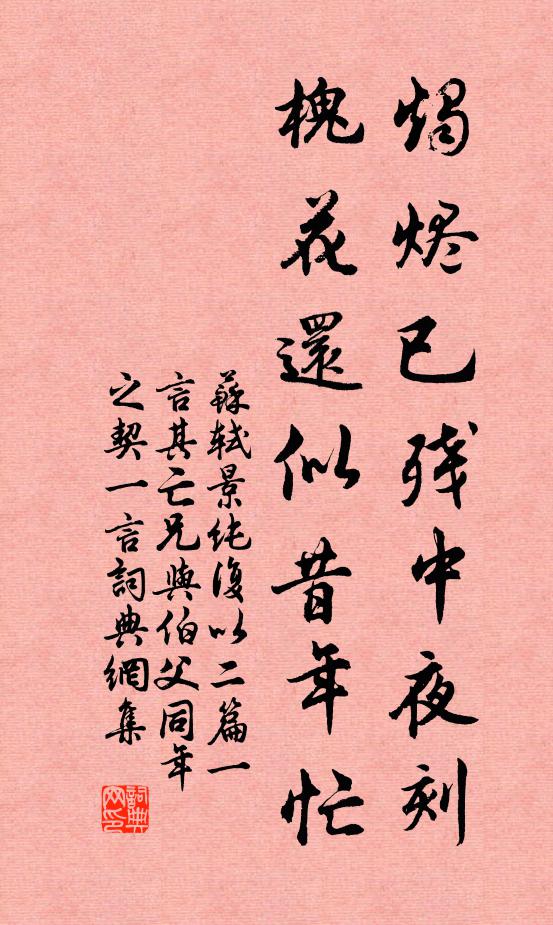 烛烬已残中夜刻
槐花還似昔年忙
蘇軾景純復以二篇一
言其亡兄與伯父同年
之契一言詞典網集
詞典網印